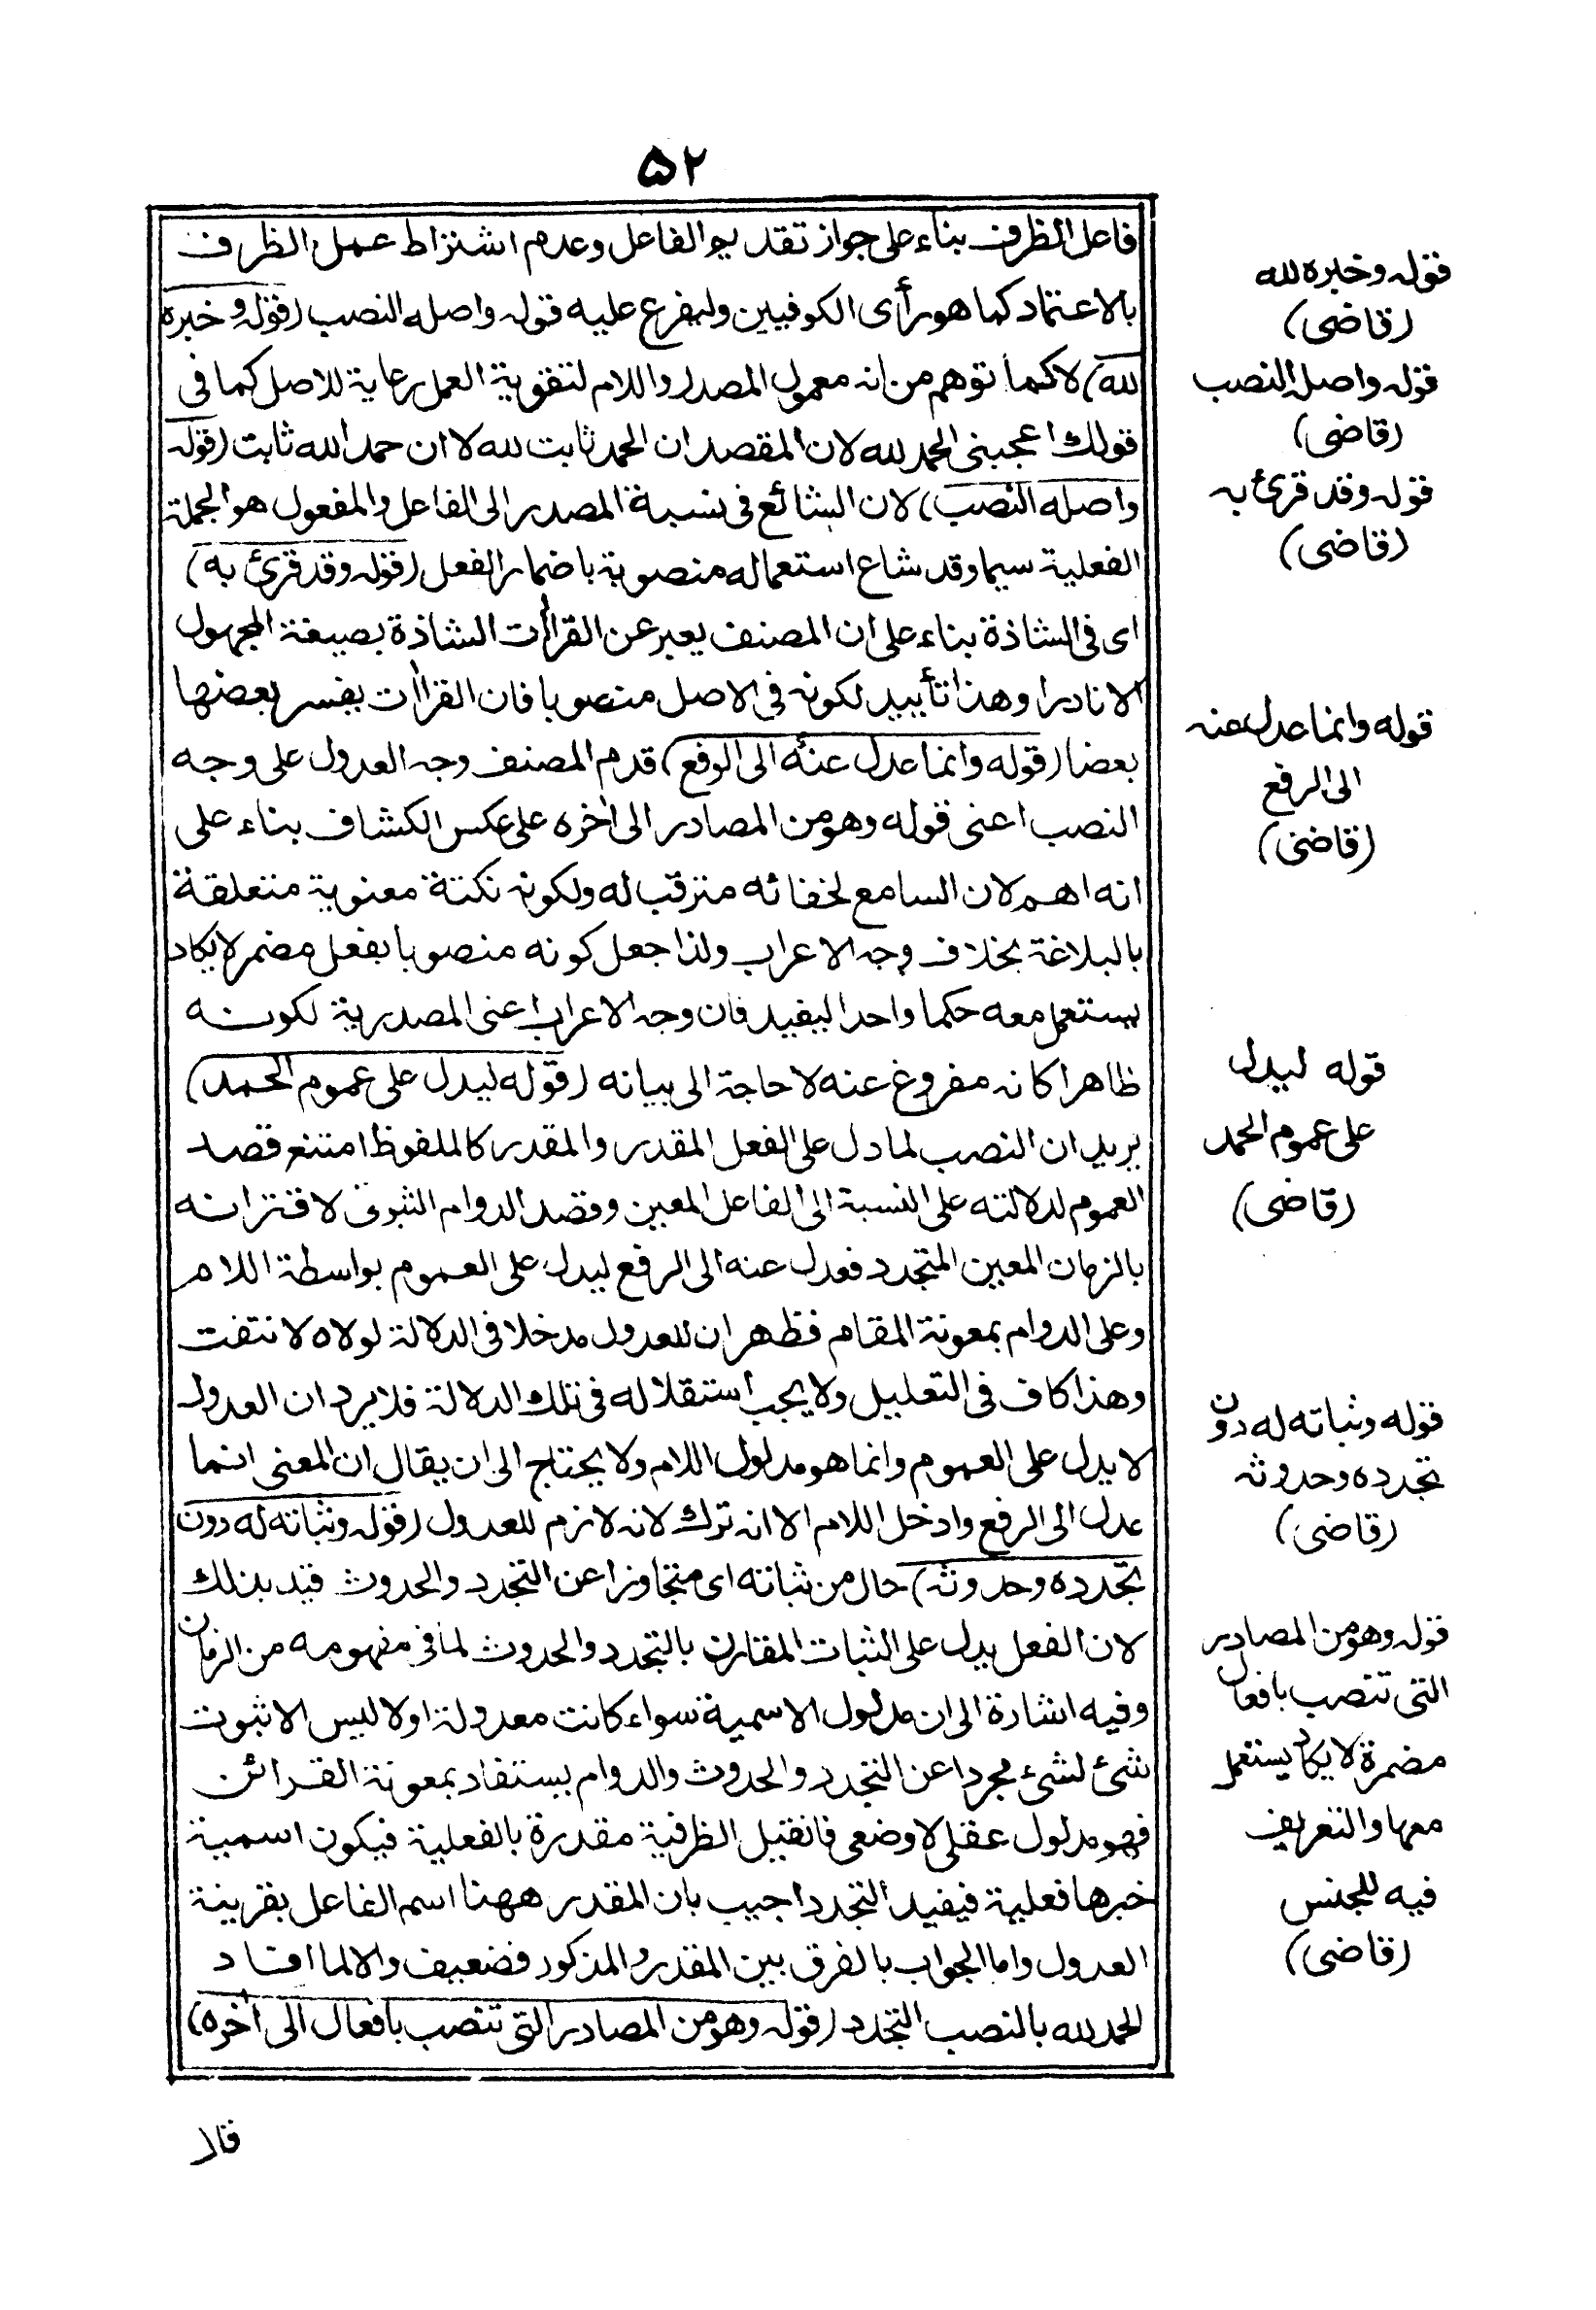 ۵۲
فاعل الظرف بناء على جواز تقديم الفاعل وعدم اشتراط عمل الظرف
بالاعتماد كما هو رأى الكوفيين وليفرع عليه قوله واصله النصب (قوله وخبره
لله) لا كما توهم من انه معمول المصدر واللام لتقوية العمل رعاية للاصل كما فى
قولك اعجبنى الحمد لله لان المقصد ان الحمد ثابت لله لا ان حمد الله ثابت (قوله
واصله النصب) لان الشائع فى نسبة المصدر الى الفاعل والمفعول هو الجملة
الفعلية سيما وقد شاع استعماله منصوبة باضمار الفعل (قوله وقد قرئ به)
اى فى الشاذة بناء على ان المصنف يعبر عن القراأت الشاذة بصيغة المجهول
الا نادرا وهذا تأييد لكونه فى الاصل منصوبا فان القراأت يفسر بعضها
بعضا (قوله وانما عدل عنه الى الرفع) قدم المصنف وجه العدول على وجه
النصب اعنى قوله وهو من المصادر الى اخره على عكس الكشاف بناء على
انه اهم لان السامع لخفائه مترقب له ولكونه نكتة معنوية متعلقة
بالبلاغة بخلاف وجه الاعراب ولذا جعل كونه منصوبا بفعل مضمر لا يكاد
يستعمل معه حكما واحدا ليفيد فان وجه الاعراب اعنى المصدرية لكونه
ظاهرا كانه مفروغ عنه لا حاجة الى بيانه (قوله ليدل على عموم الحمد)
يريد ان النصب لما دل على الفعل المقدر والمقدر كالملفوظ امتنع قصد
العموم لدلالته على النسبة الى الفاعل المعين وقصد الدوام الثبوتى لاقترانه
بالزمان المعين المتجدد فعدل عنه الى الرفع ليدل على العموم بواسطة اللام
وعلى الدوام بمعونة المقام فظهر ان للعدول مدخلا فى الدلالة لولاه لانتفت
وهذا كاف فى التعليل ولا يجب استقلاله فى تلك الدلالة فلا يرد ان العدول
لا يدل على العموم وانما هو مدلول اللام ولا يحتاج الى ان يقال ان المعنى انما
عدل الى الرفع وادخل اللام الا انه ترك لانه لازم للعدول (قوله وثباته له دون
تجدده وحدوثه) حال من ثباته اى متجاوزا عن التجدد والحدوث قيد بذلك
لان الفعل يدل على الثبات المقارن بالتجدد والحدوث لما فى مفهومه من الزمان
وفيه اشارة الى ان مدلول الاسمية سواء كانت معدولة او لا ليس الا ثبوت
شئ لشئ مجردا عن التجدد والحدوث والدوام يستفاد بمعونة القرائن
فهو مدلول عقلى لا وضعى فان قيل الظرفية مقدرة بالفعلية فيكون اسمية
خبرها فعلية فيفيد التجدد اجيب بان المقدر ههنا اسم الفاعل بقرينة
العدول واما الجواب بالفرق بين المقدر والمذكور فضعيف والا لما افاد
الحمد لله بالنصب التجدد (قوله وهو من المصادر التى تنصب بافعال الى اخره)
قال
قوله وخبره لله
(قاضى)
قوله واصله النصب
(قاضى)
قوله وقد قرئ به
(قاضى)
قوله وانما عدل عنه
الى الرفع
(قاضى)
قوله ليدل
على عموم الحمد
(قاضى)
قوله وثباته له دون
تجدده وحدوثه
(قاضى)
قوله وهو من المصادر
التى تنصب بافعال
مضمرة لا يكاد يستعمل
معها والتعريف
فيه للجنس
(قاضى)